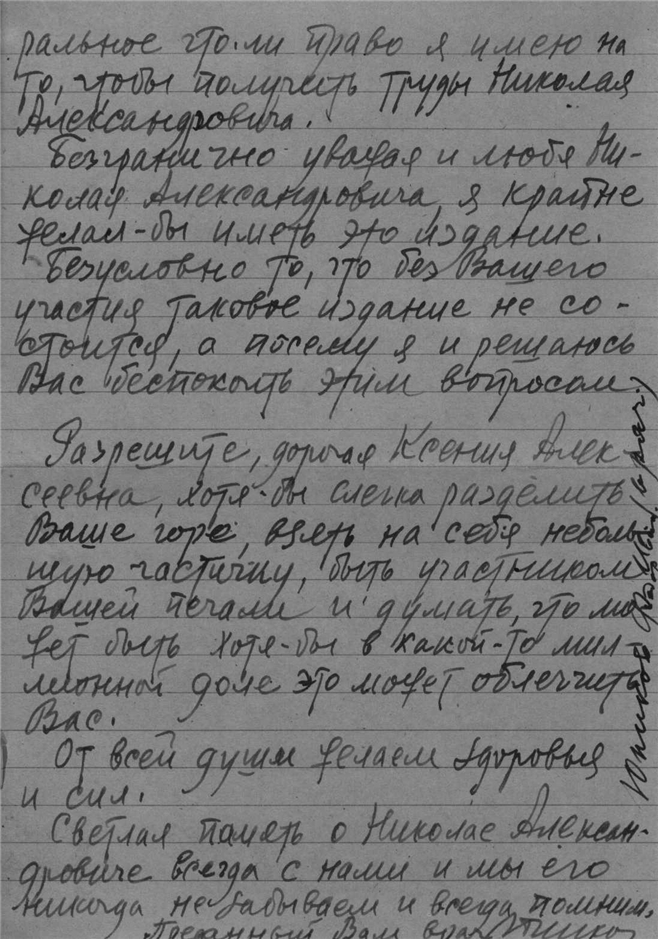 ральное что-ли право я имею на
то, чтобы получить труды Николая
Александровича.
Безгранично уважая и любя Ни-
колая Александровича, я крайне
желал-бы иметь это издание.
Безусловно то, что без Вашего
участия таковое издание не со-
стоится, а посему я и решаюсь
Вас беспокоить этим вопросом.
Разрешите, дорогая Ксения Алек
сеевна, хотя-бы слегка разделить
Ваше горе, взять на себя неболь
шую частичку, быть участником
Вашей печали и думать, что мо
жет быть хотя-бы в какой-то мил-
лионной доле это может облегчить
Вас.
От всей души желаем здоровья
и сил.
Светлая память о Николае Алексан-
дровиче всегда с нами и мы его
никогда не забываем и всегда помним.
Преданный Вам врач